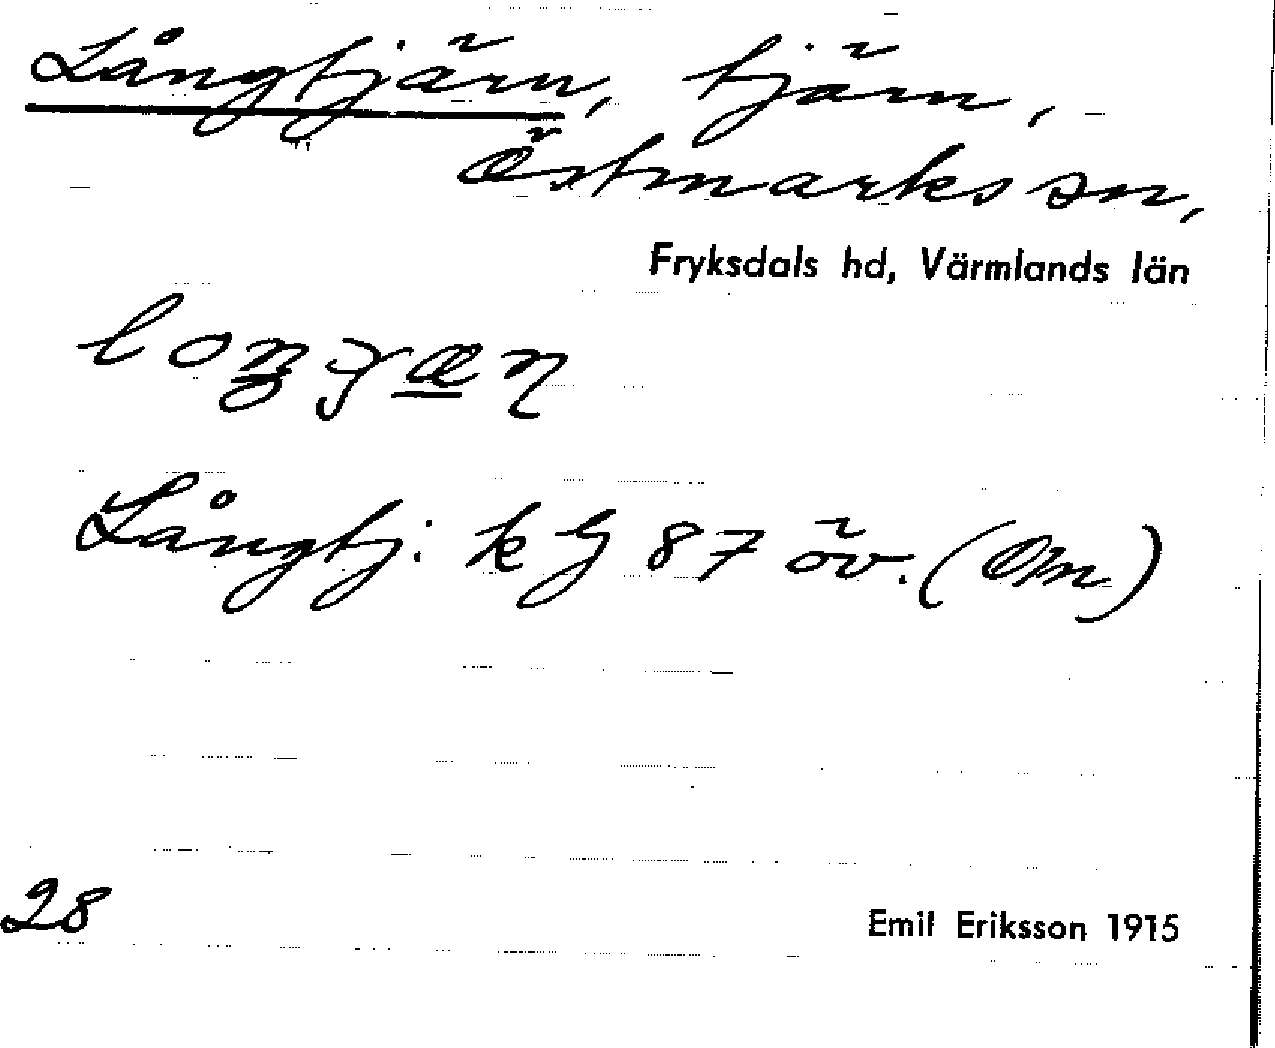 Långtjärn, tjärn,
Östmarks sn,
Fryksdals hd, Värmlands län
Långtj. k G 87 öv. (Öm)
28
Emil Eriksson 1915